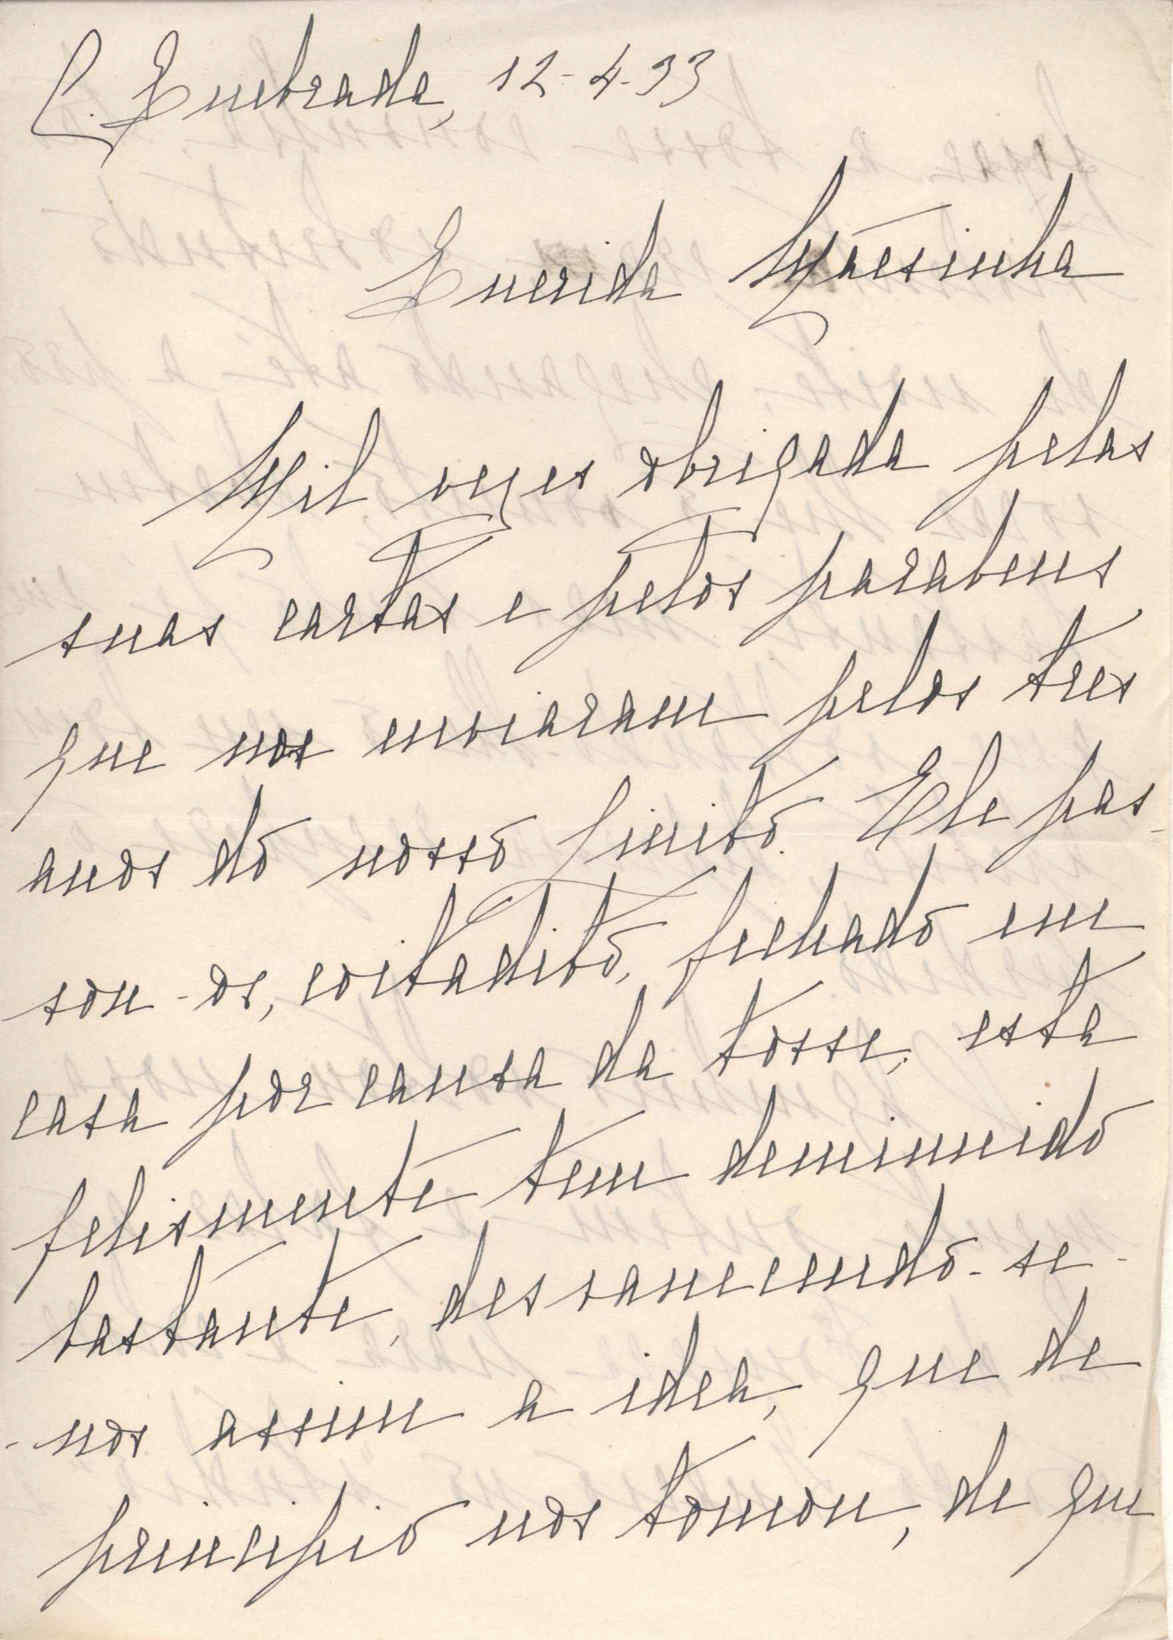 C. Quebrada, 12-4-33
Querida Mãesinha
Mil vezes obrigada pelas
suas cartas e pelos parabens
que nos enviaram pelos tres
anos do nosso Finitó. Ele pas-
sou-os, coitadito, fechado em
casa por causa da tosse; esta
felismente tem deminuido
bastante, desvanecendo-se-
-nos assim a idea, que de
principio nos tomou, de que